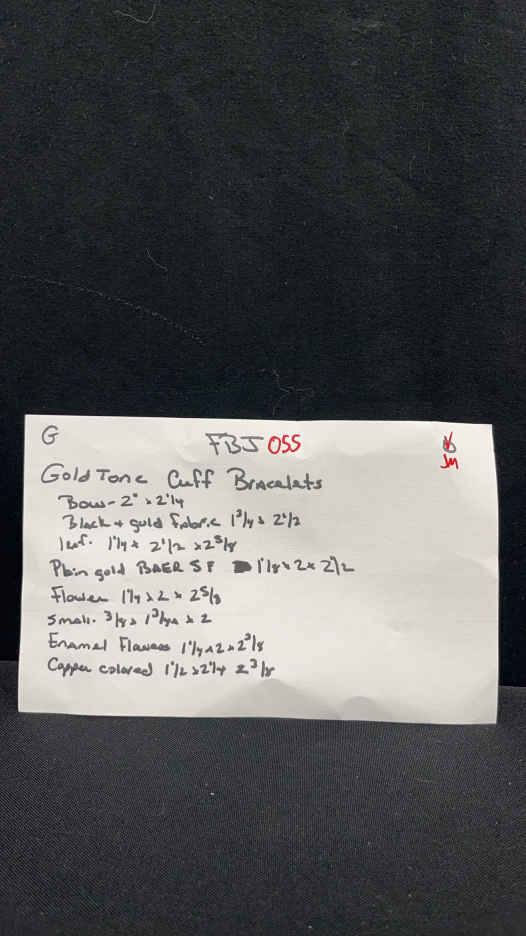 G FBJ OSS
JM
Gold Tone Cuff Bracelets
Bow - 2" x 2 1/4
Black + gold fabric 1 3/4 x 2 1/2
leaf. 1 1/4 x 2 1/2 x 2 5/8
Plain gold BAER SF 1 1/8 x 2 x 2 1/2
Flower 1 1/4 x 2 x 2 5/8
Small. 3/4 x 1 3/4 x 2
Enamel Flowers 1 1/4 x 2 x 2 3/8
Copper colored 1 1/2 x 2 1/4 2 3/8